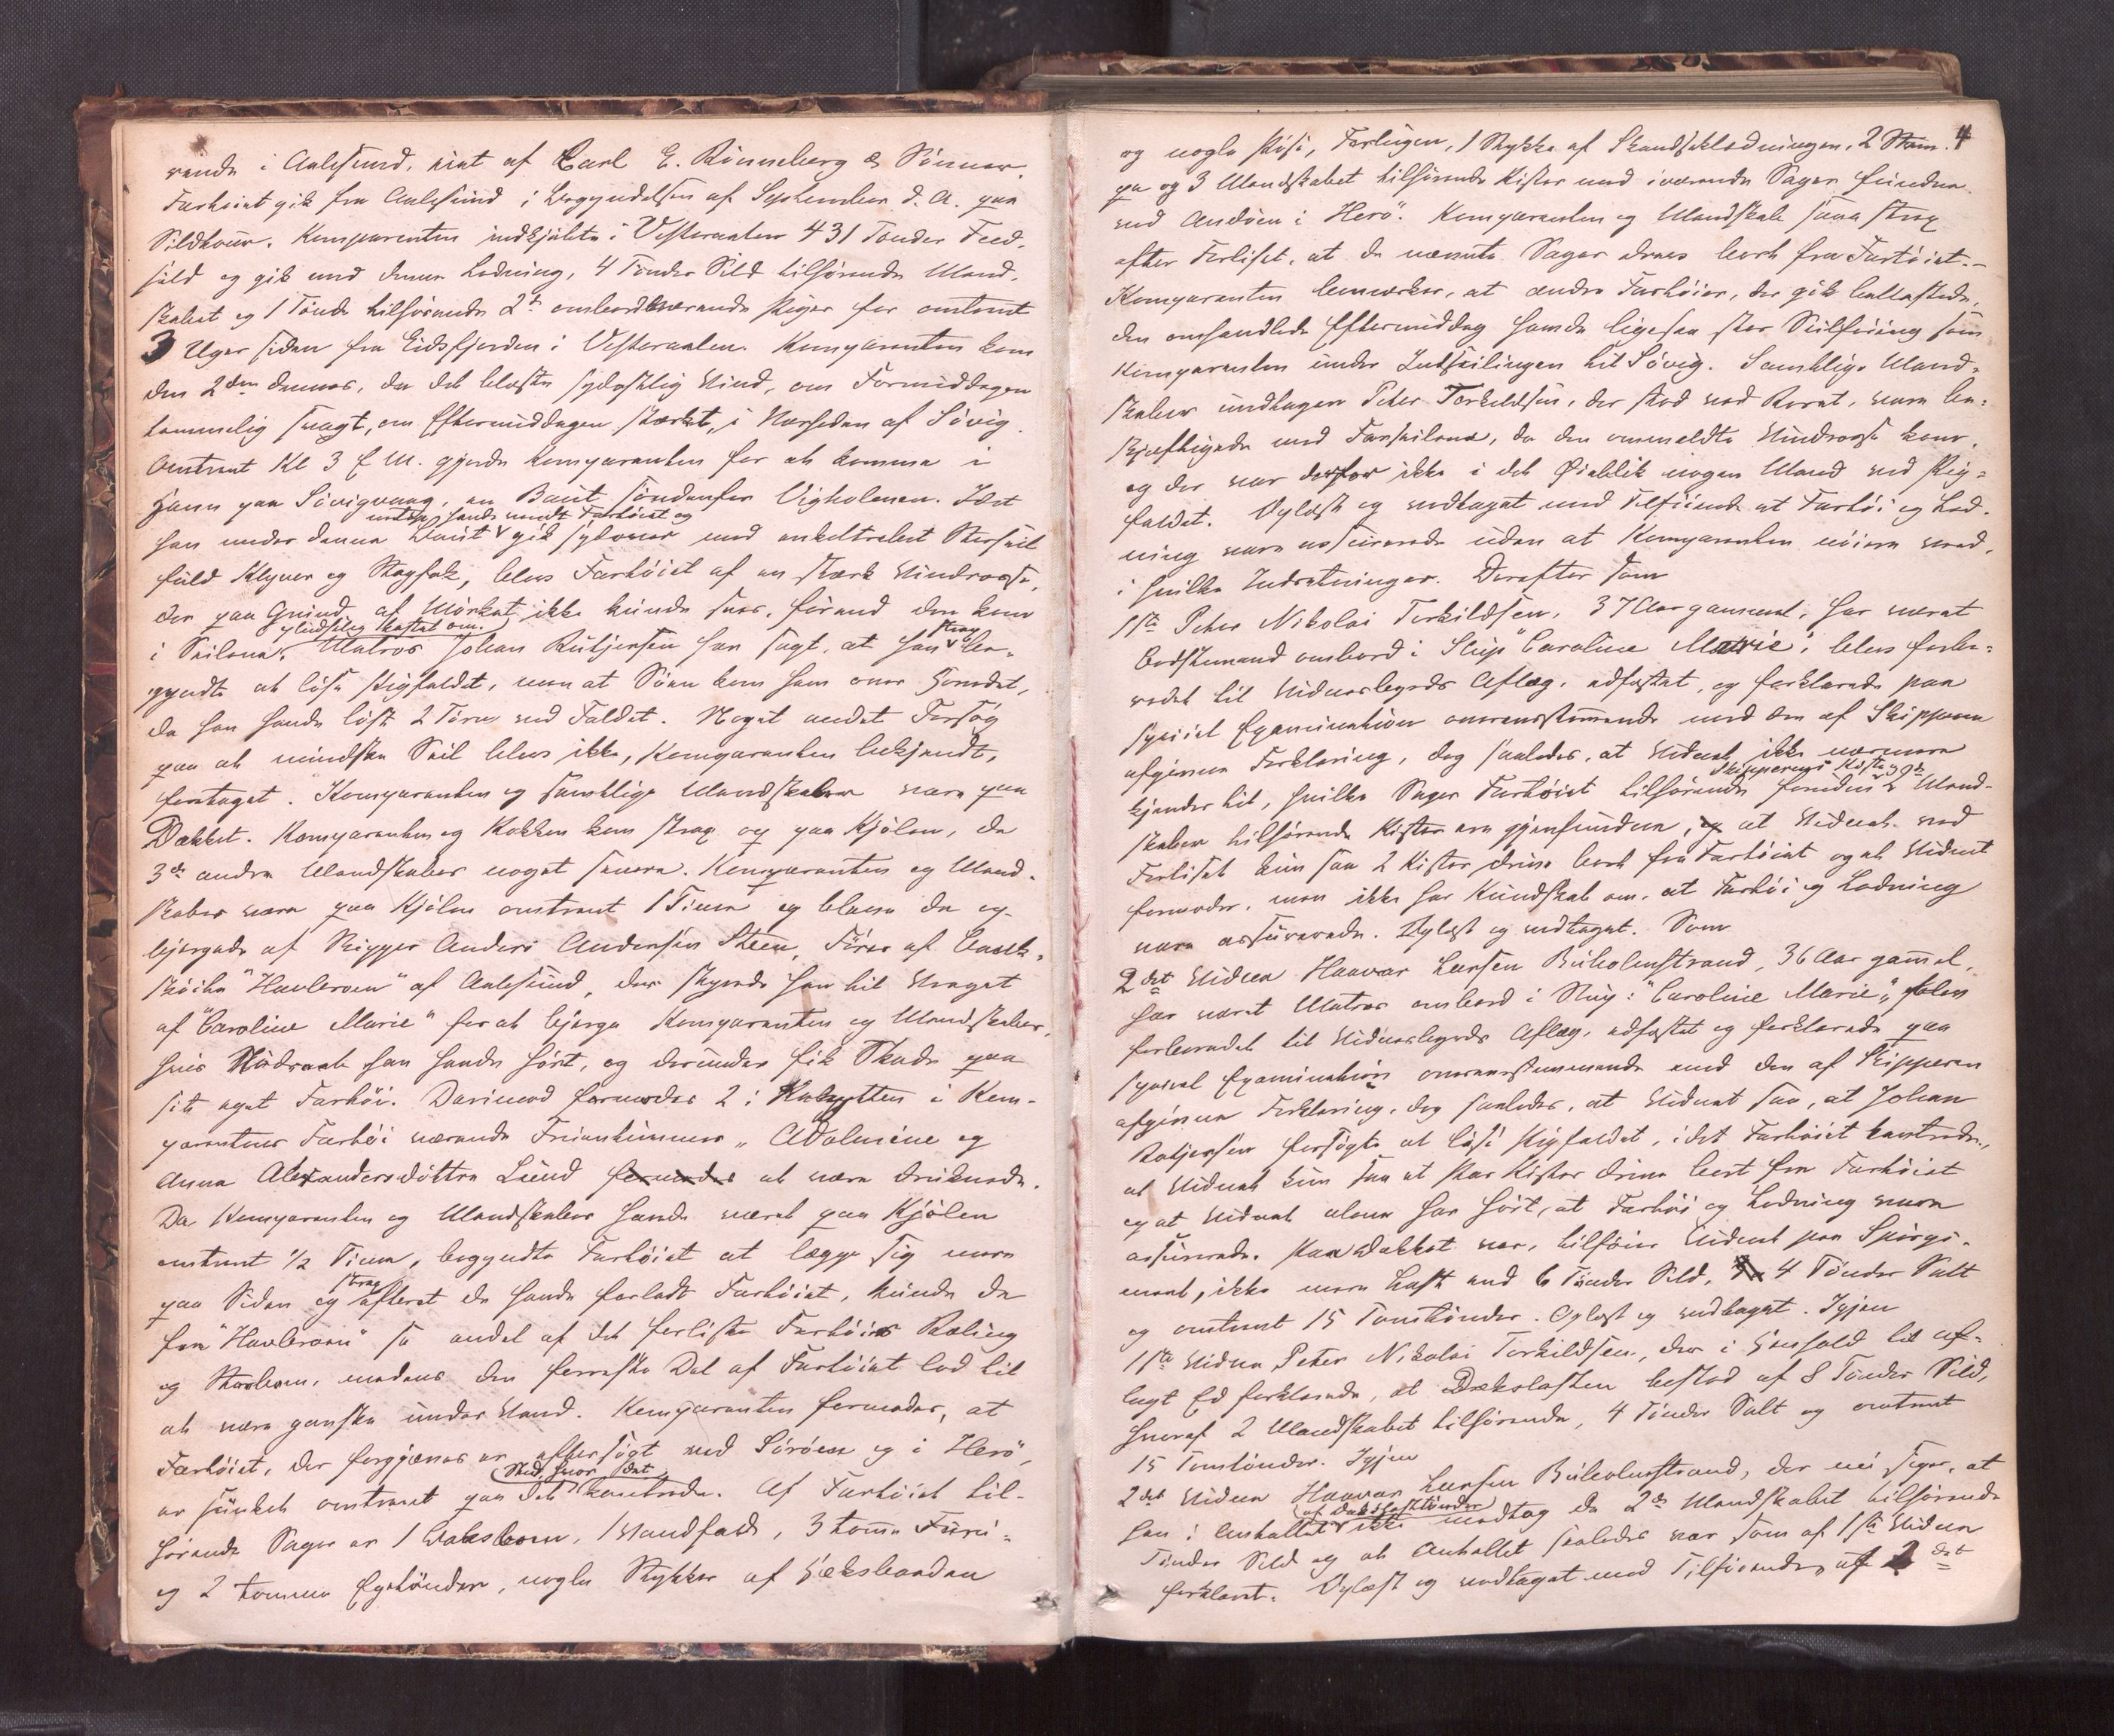 rende i Aalesund, eiet af Carl E. Rönneberg & Sönner.
Fartøiet gik fra Aalesund i Begyndelsen af September d. A. paa
Sildtour. Komparenten indkjøbte i Vesteraalen 431 Tønder Feed-
sild og gik med denne Ladning, 4 Tønder Sild tilhørende Mand-
skabet og 1 Tønde tilhørende 2de ombordværende Piger for omtrent
3 Uger siden fra Eidsfjorden i Vesteraalen. Komparenten kom
den 2den dennes, da det blæste sydostlig Vind, om Formiddagen
temmelig svagt, om Eftermiddagen stærkt, i Nærheden af Søvig.
Omtrent Kl 3 E M. gjorde Komparenten for at komme i
Havn paa Søvigvaag, en Baut søndenfor Vigholmen. Idet
han under denne Baut gik sydover med enkeltrebet Storseil
netop havde vendt Fartøiet og
fuld Klyver og Stagfok, blev Fartøiet af en stærk Vindrosse,
der paa Grund af Mørket ikke kunde sees, førend den kom
i Seilene, Matros Johan Rutjersen har sagt, at han be-
pludselig kastet om. strax
gyndte at løse Pigfaldet, men at Søen kom ham over Hovedet,
da han havde løst 2 Tørn ved Faldet. Noget andet Forsøg
paa at mindske Seil blev ikke, Komparenten bekjendt,
foretaget. Komparenten og samtlige Mandskaber vare paa
Dækket. Komparenten og Kokken kom strax op paa Kjølen, de
3de andre Mandskaber noget senere. Komparenten og Mand-
skaber vare paa Kjølen omtrent 1 Time og bleve da op-
bjergede af Skipper Anders Andersen Steen, Fører af Bank-
skøite "Havbroen" af Aalesund, der styrede hen til Vraget
af "Caroline Marie" for at bjerge Komparenten og Mandskaber,
hvis Nødraab han havde hørt, og derunder fik Skade paa
sit eget Fartøi. Derimod formodes 2 i Kahytten i Kom-
parentens Fartøi værende Fruentimmer, Adolmine og
Anna Alexandersdöttre Lund formodes at være druknede.
Da Komparenten og Mandskaber havde været paa Kjølen
omtrent 1/2 Time, begyndte Fartøiet at lægge sig mere
paa Siden og efterat de havde forladt Fartøiet, kunde de
strax
fra "Havbroen" se endel af det forliste Fartøies Ræling
og Storbom, medens den forreste Del af Fartøiet lod til
at være ganske under Vand. Komparenten formoder, at
Fartøiet, der forgjæves er eftersøgt ved Sørøen og i Herø,
er sunket omtrent paa det kantrede. Af Fartøiet til-
Sted, hvor det
hørende Sager er 1 Dæksbom, 1 Vandfad, 3 tomme Furu-
og 2 tomme Egetønder, nogle Stykker af Hæksbaaden
4
og nogle Løse, Forlugen, 1 Stykke af Skandseklædningen, 2 Stam-
pe og 3 Mandskabet tilhørende Kister med iværende Sager fundne
ved Andøen i Herö. Komparenten og Mandskab saae strax
efter Forliset, at de nævnte Sager dreve bort fra Fartøiet. —
Komparenten bemærker, at andre Fartøier, der gik ballastede,
den omhandlede Eftermiddag havde ligesaa stor Seilføring som
Komparenten under Indseilingen til Søvig. Samtlige Mand-
skaber undtagen Peter Torkildsen, der stod ved Roret, vare be-
skjæftigede med Forseilene, da den ommeldte Vindrosse kom,
og der var derfor ikke i det Øieblik nogen Mand ved Pig-
faldet. Oplæst og vedtaget med Tilføiende at Fartøi og Lad-
ning vare assurerede uden at Komparenten nøiere veed,
i hvilke Indretninger. Derefter som
1ste Peter Nikolai Torkildsen, 37 Aar gammel, har været
Bedstemand ombord i Slup "Caroline Marie", blev forbe-
redet til Vidnesbyrds Aflæg, edfæstet, og forklarede paa
speciel Examination overensstemmende med den af Skipperen
afgivne Forklaring, dog saaledes, at Vidnet ikke nærmere
kjender til, hvilke Sager Fartøiet tilhørende foruden 2 Mand-
Skipperens Kiste og de
skaber tilhørende Kister ere gjenfundne, og at Vidnet ved
Forliset kun saa 2 Kister drive bort fra Fartøiet og at Vidnet
formoder, men ikke har Kundskab om, at Fartøi og Ladning
vare assurerede. Oplæst og vedtaget. Som
2det Vidne Haavar Larsen Buholmstrand, 36 Aar gammel,
har været Matros ombord i Slup: "Caroline Marie", blev
forberedet til Vidnesbyrds Aflæg, edfæstet og forklarede paa
speciel Examination overensstemmende med den af Skipperen
afgivne Forklaring, dog saaledes, at Vidnet saa, at Johan
Rutjersen forsøgte at løse Pigfaldet, idet Fartøiet kantrede,
at Vidnet kun saa et Par Kister drive bort fra Fartøiet
og at Vidnet alene har hørt, at Fartøi og Ladning vare
assurerede. Paa Dækket var, tilføier Vidnet paa Spørgs-
maal, ikke mere Last end 6 Tønder Sild, 4 Tønder Salt
og omtrent 15 Tomtønder. Oplæst og vedtaget. Igjen
1ste Vidne Peter Nikolai Torkildsen, der i Henhold til af-
lagt Ed forklarede, at Dækslasten bestod af 8 Tønder Sild,
hvoraf 2 Mandskabet tilhørende, 4 Tønder Salt og omtrent
15 Tomtønder. Igjen
2det Vidne Haavar Larsen Buholmstrand, der nu siger, at
han i Antallet ikke medtog de 2de Mandskabet tilhørende
af Dækslasttønder
Tønder Sild og at Antallet saaledes var som af 1ste Vidne
forklaret. Oplæst og vedtaget med Tilføiende af 2det